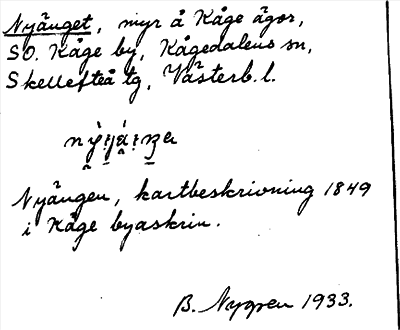 Nyänget, myr å Kåge ägor,
SO. Kåge by, Kågedalens sn,
Skellefteå tg, Västerb. l.
Nyängen, kartbeskrivning 1849
i Kåge byaskrin.
B. Nygren 1933.